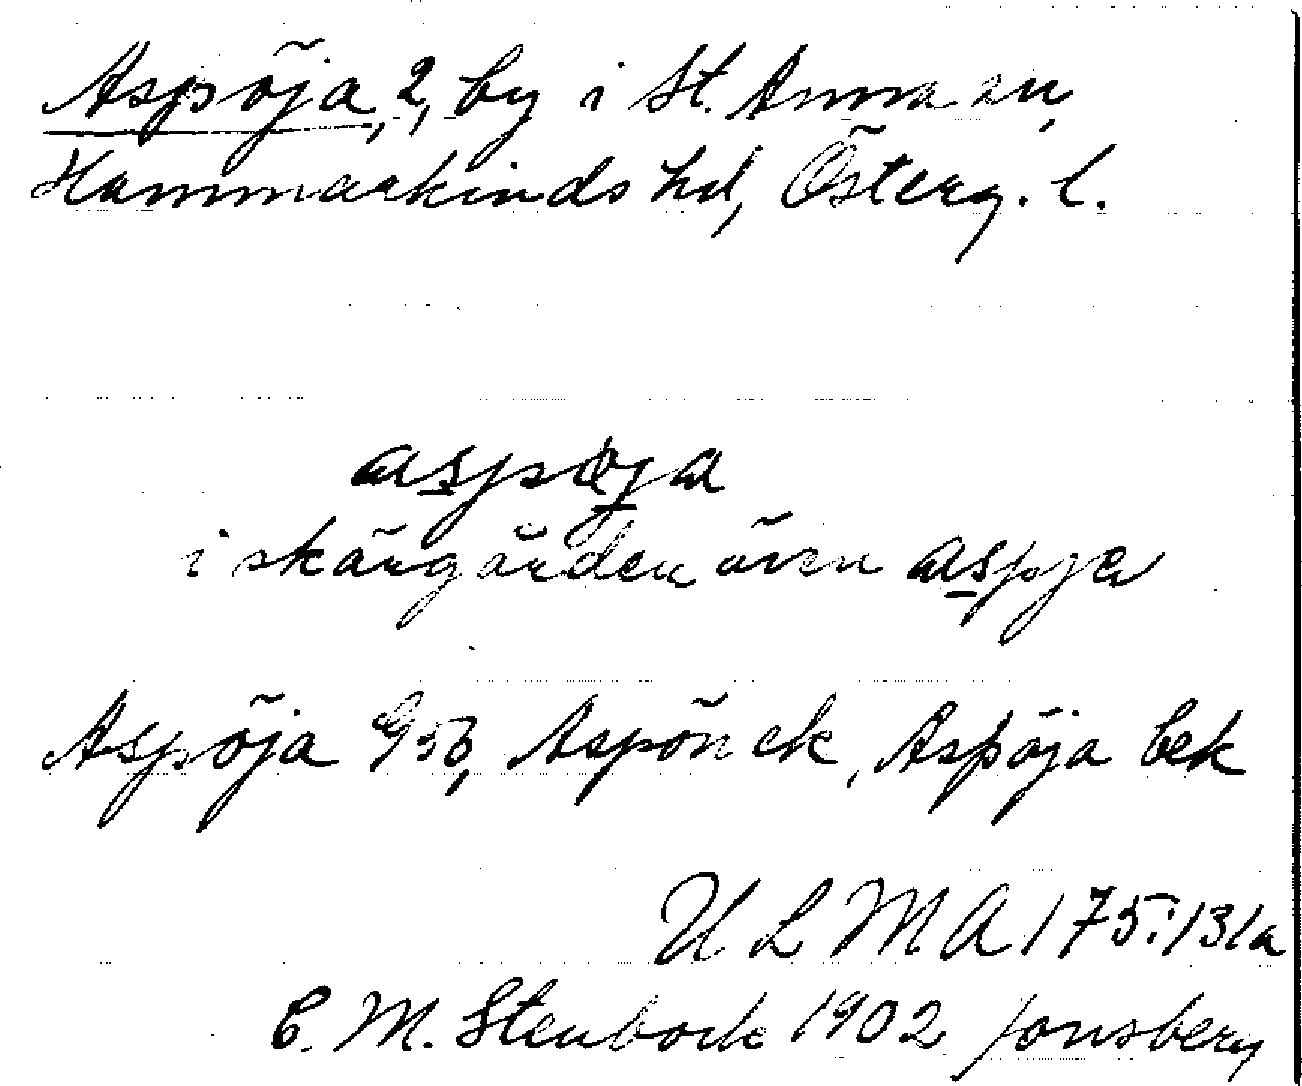 Aspöja, 2, by i St. Anna sn,
Hammarkinds hd, Österg. l.
aspøja
i skärgården även aspja
Aspöja G5B, Aspön ek, Aspöja bek
ULMA 175:131a
C. M. Stenbock 1902 Jonsberg